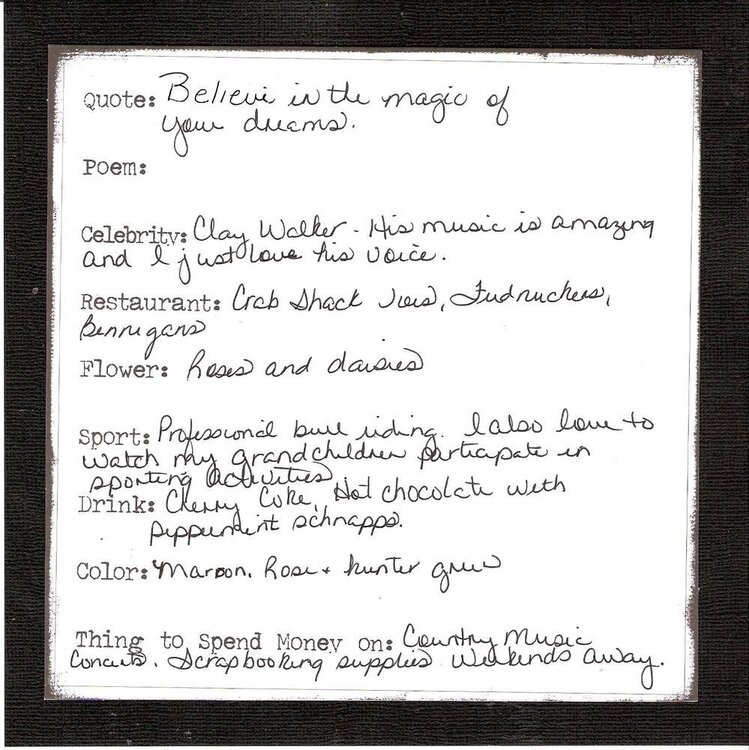 Quote: Believe in the magic of
your dreams.
Poem:
Celebrity: Clay Walker - His music is amazing
and I just love his voice.
Restaurant: Crab Shack Joes, Fudruckers,
Bennigans
Flower: Roses and daisies
Sport: Professional bull riding. I also love to
watch my grandchildren participate in
sporting activities
Drink: Cherry Coke, Hot chocolate with
peppermint schnapps.
Color: Maroon, Rose + hunter green
Thing to Spend Money on: Country Music
Concerts. Scrapbooking supplies Weekends away.